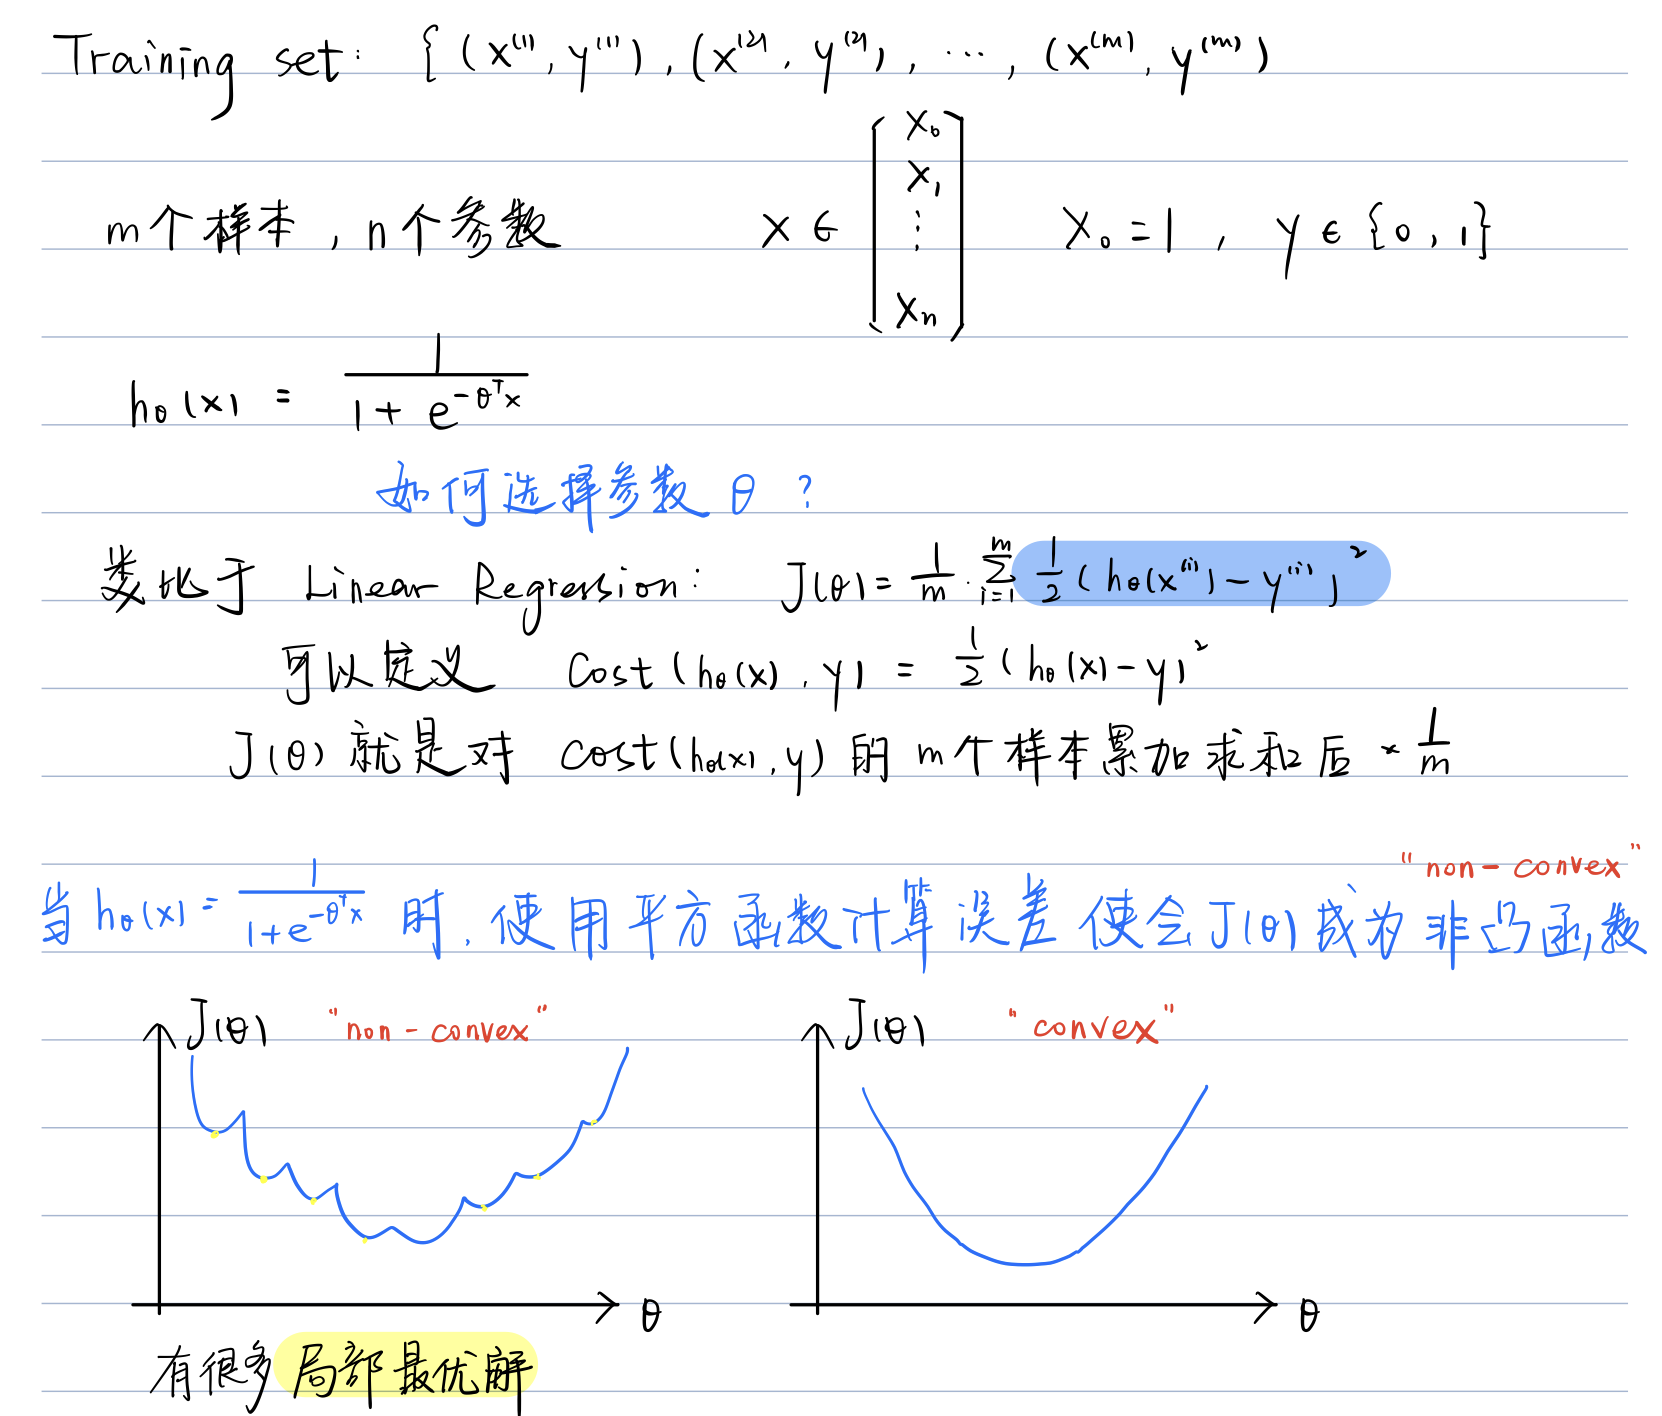 Training set: { (x⁽¹⁾, y⁽¹⁾), (x⁽²⁾, y⁽²⁾), ⋯, (x⁽ᵐ⁾, y⁽ᵐ⁾)
m个样本，n个参数 x ∈ [x₀ x₁ ⋮ xₙ] x₀ = 1, y ∈ {0, 1}
hθ(x) = 1 / (1 + e^(-θᵀx))
如何选择参数 θ ?
类比于 Linear Regression: J(θ) = 1/m · Σ_{i=1}^{m} 1/2 (hθ(x⁽ⁱ⁾) - y⁽ⁱ⁾)²
可以定义 Cost(hθ(x), y) = 1/2 (hθ(x) - y)²
J(θ) 就是对 cost(hθ(x), y) 的 m个样本累加求和后 × 1/m
"non-convex"
当 hθ(x) = 1 / (1+e^(-θᵀx)) 时, 使用平方函数计算误差 使会 J(θ) 成为 非凸函数
J(θ) "non-convex" J(θ) "convex"
θ θ
有很多局部最优解